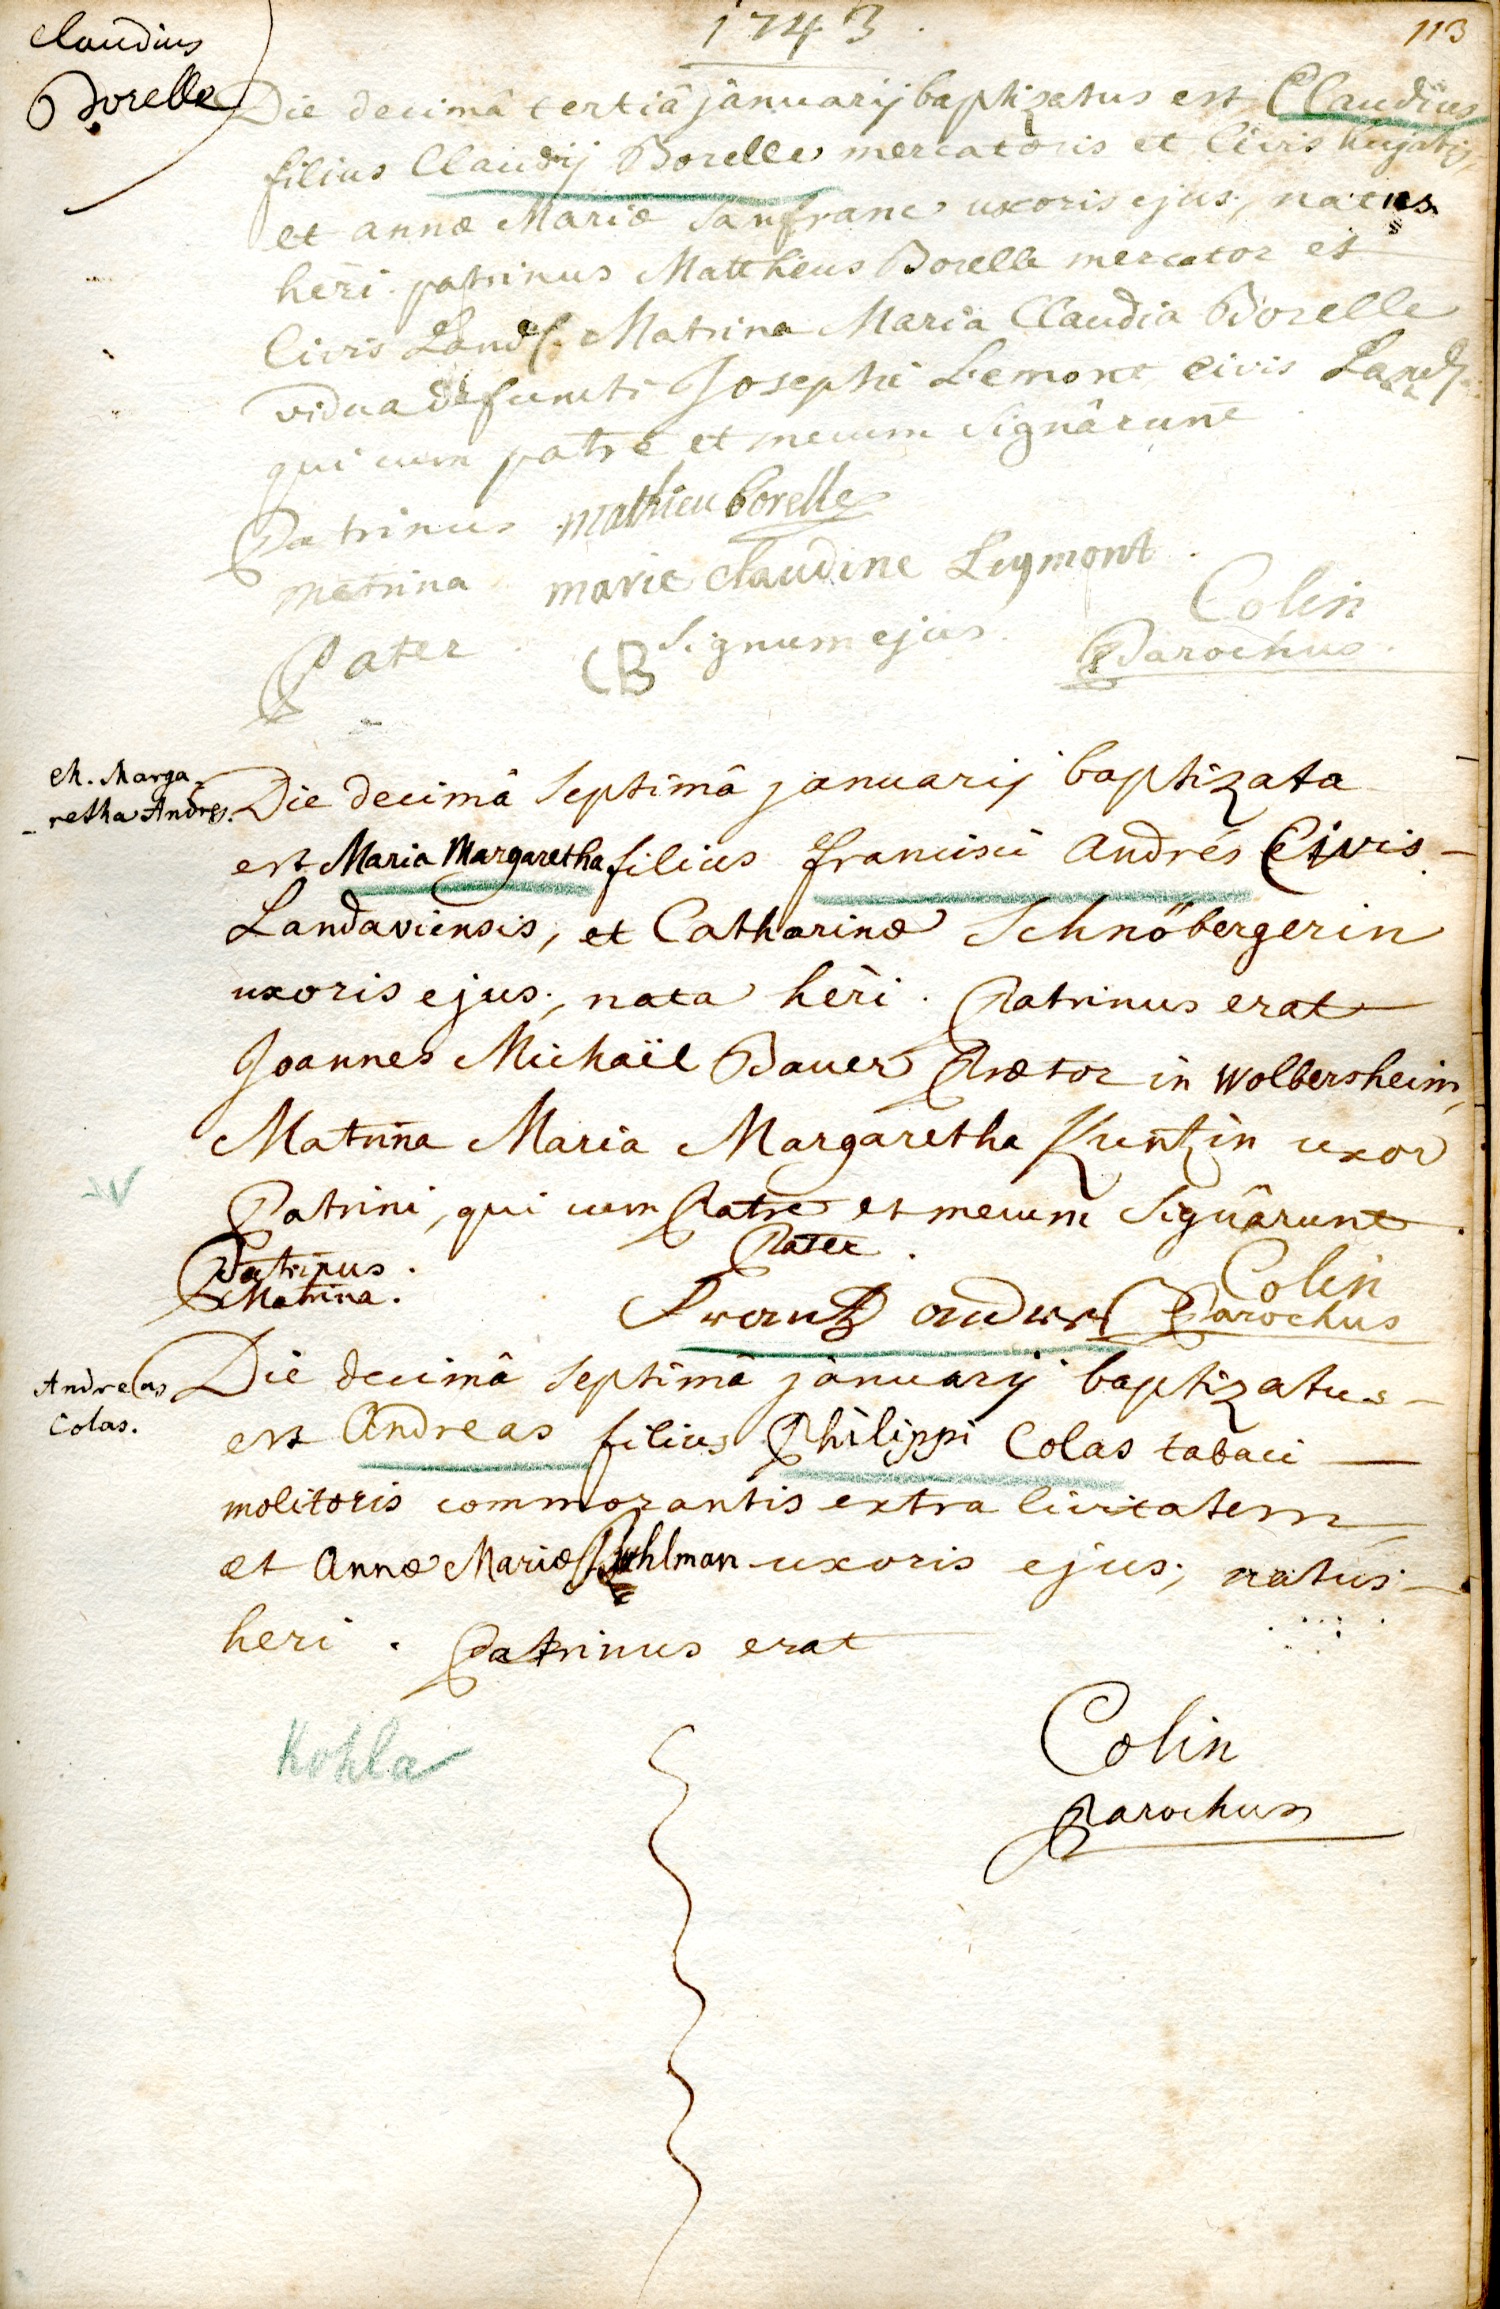 1743.
113
Claudius
Borelle
Die decimâ tertiâ januarij baptizatus est Claudius
filius Claudij Borelle mercatoris et Civis hujatis,
et annæ Mariæ Sanfranc uxoris ejus, natus
heri. patrinus Mattheus Borelle mercator et
Civis Land. Matrina Maria Claudia Borelle
vidua defuncti Josephi Lemont civis Land.
qui cum patre et mecum signârunt
Patrinus mathieu borelle
matrina marie claudine Leymont
Pater CB signum ejus.
Colin
Parochus.
M. Marga
-retha Andres.
Die decimâ septimâ januarij baptizata
est Maria Margaretha filius francisci andrés Civis
Landaviensis, et Catharinæ Schnöbergerin
uxoris ejus, nata heri. Patrinus erat
Joannes Michaël Bauer Prætor in Wolbersheim,
Matrina Maria Margaretha Kuntzin uxor
Patrini, qui cum Patre et mecum signârunt.
Patrinus. Pater.
Matrina. Frantz andres
Colin
Parochus
Andreas
Colas.
Die decimâ septimâ januarij baptizatus
est Andreas filius Philippi Colas tabaci
molitoris commorantis extra Civitatem
et Annæ Mariæ uxoris ejus, natus
heri. Patrinus erat
Kohla
Colin
Parochus